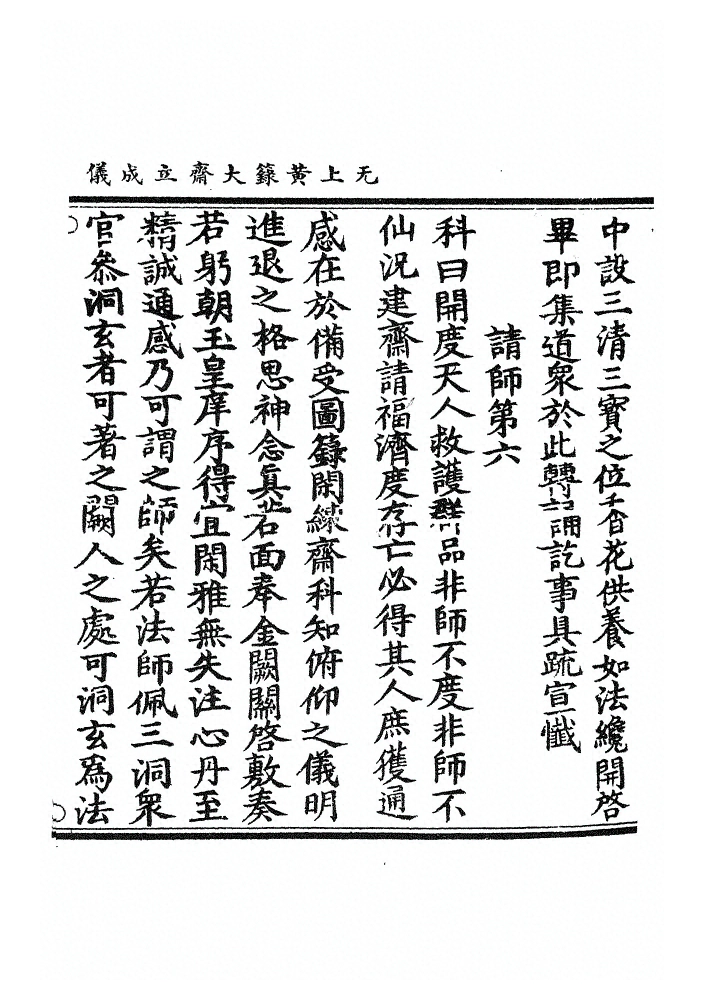 无上黃籙大齋立成儀
中設三清三寶之位千香花供養如法纔開啓
畢即集道衆於此轉誦訖事具疏宣懴
請師第六
科曰開度天人救護群品非師不度非師不
仙況建齋請福濟度存亡必得其人庶獲通
感在於備受圖籙閑練齋科知俯仰之儀明
進退之格思神念真若面奉金闕關啓敷奏
若躬朝玉皇庠序得宜閑雅無失注心丹至
精誠通感乃可謂之師矣若法師佩三洞衆
官叅洞玄者可著之闕人之處可洞玄爲法